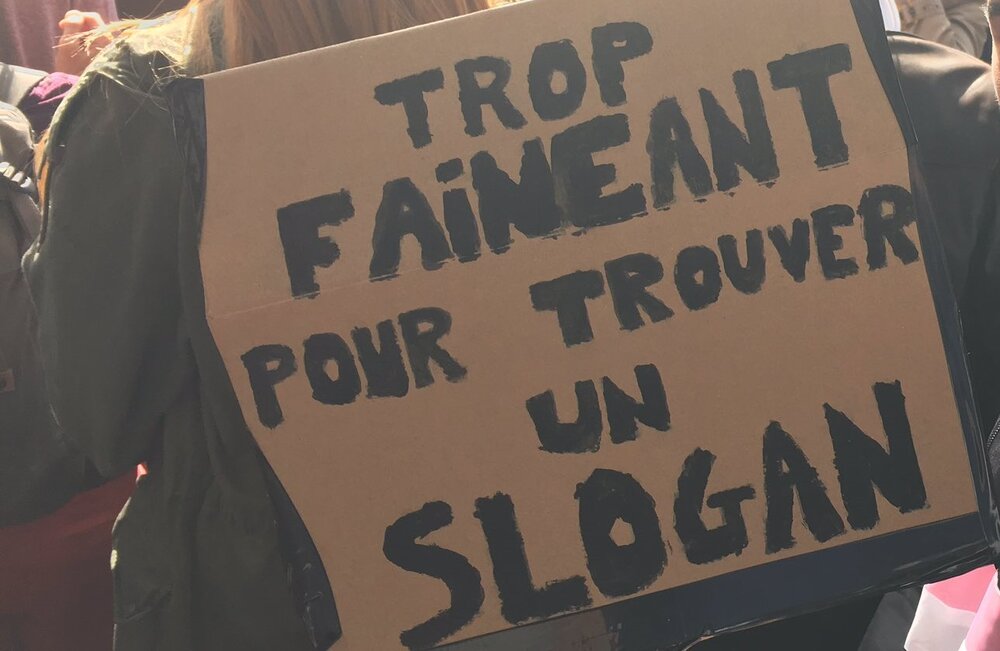 TROP
FAiNEANT
POUR TROUVER
UN
SLOGAN